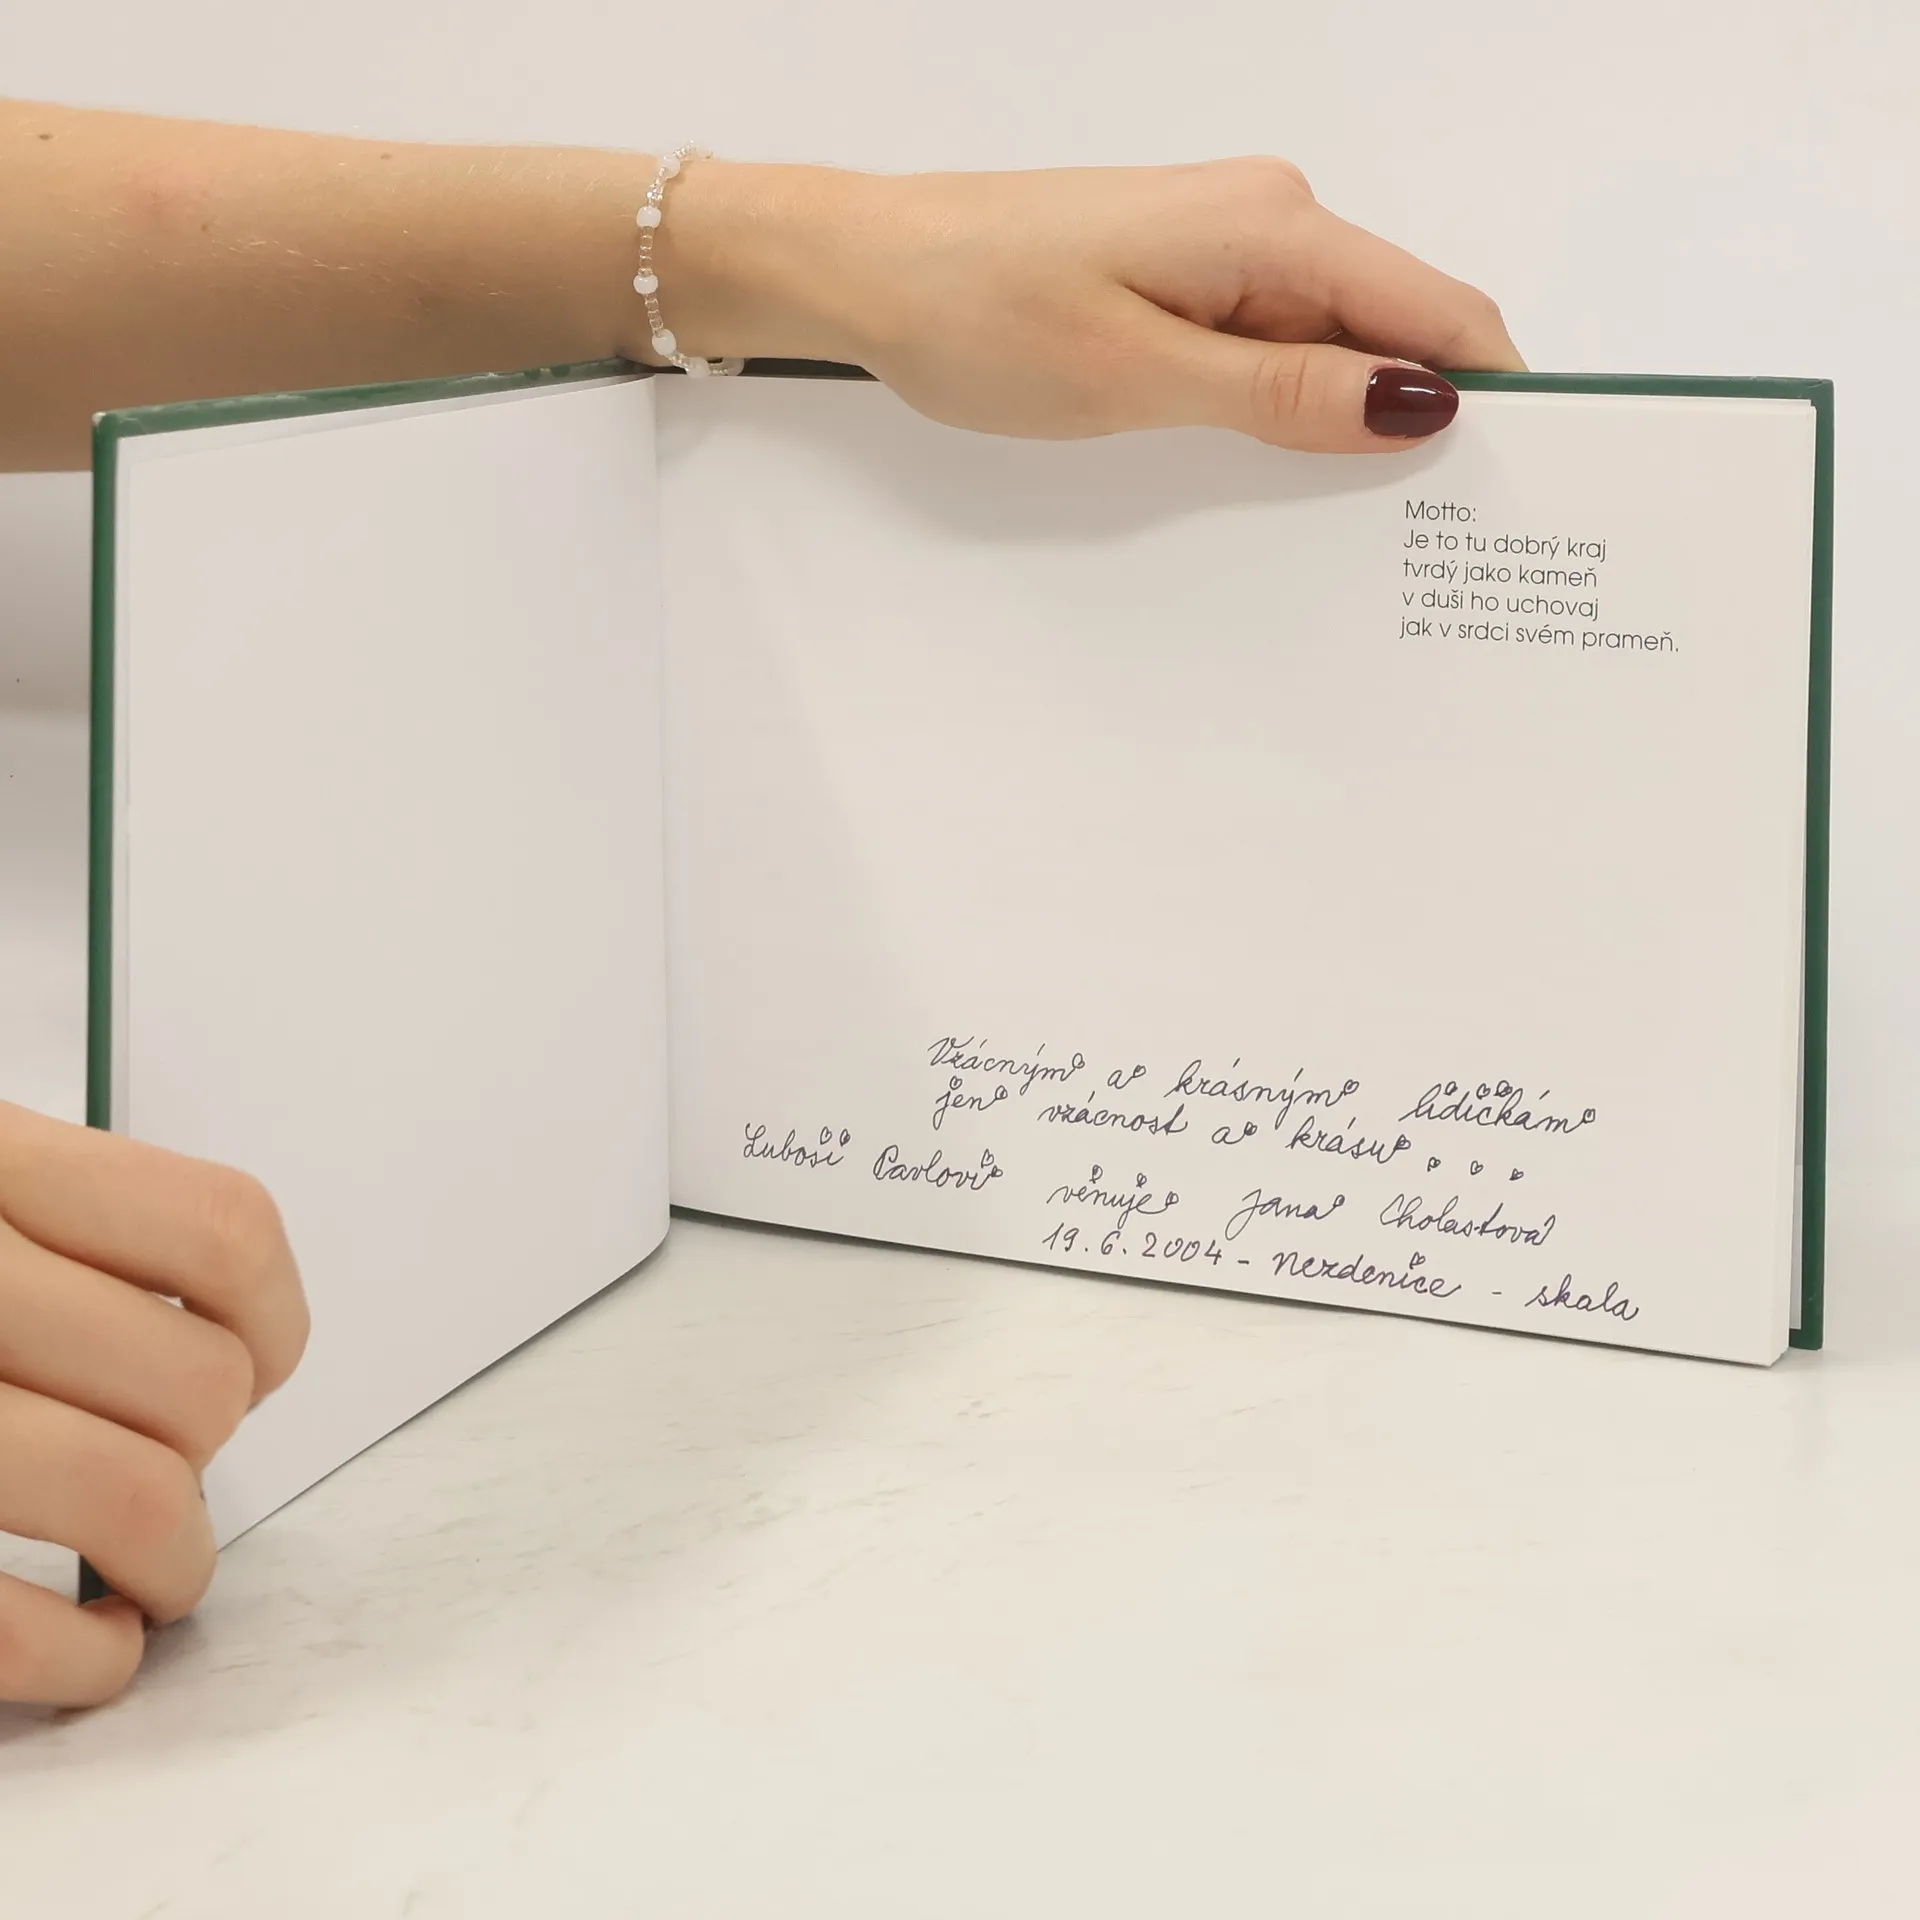 Motto:
Je to tu dobrý kraj
tvrdý jako kameň
v duši ho uchovaj
jak v srdci svém prameň.
Vzácným a krásným lidičkám
jen vzácnost a krásu . . .
Luboši Pavlovi věnuje Jana Cholastová
19. 6. 2004 - Nezdenice - skala